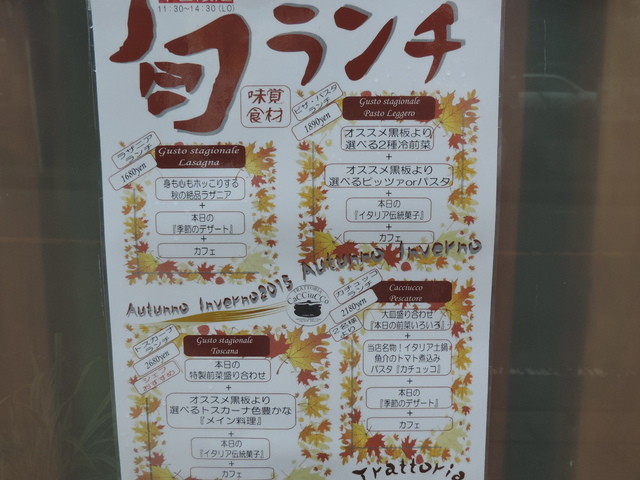 11:30~14:30(LO)
旬ランチ
味覚
食材
ラザニア
ランチ
1680yen
Gusto stagionale
Lasagna
身も心もホッこりする
秋の絶品ラザニア
+
本日の
『季節のデザート』
+
カフェ
ピザ・パスタ
ランチ
1890yen
Gusto stagionale
Pasto Leggero
オススメ黒板より
選べる2種冷前菜
+
オススメ黒板より
選べるピッツァorパスタ
+
本日の
『イタリア伝統菓子』
+
カフェ
Autunno Inverno2015 Autunno Inverno
TRATTORIA
CaCCiuCCo
トスカーナ
ランチ
2680yen
おすすめ
Gusto stagionale
Toscana
本日の
特製前菜盛り合わせ
+
オススメ黒板より
選べるトスカーナ色豊かな
『メイン料理』
+
本日の
『イタリア伝統菓子』
+
カフェ
カチュッコ
ランチ
2180yen
2名様
より
Cacciucco
Pescatore
大皿盛り合わせ
『本日の前菜いろいろ』
+
当店名物!イタリア土鍋
魚介のトマト煮込み
パスタ『カチュッコ』
+
本日の
『季節のデザート』
+
カフェ
Trattoria